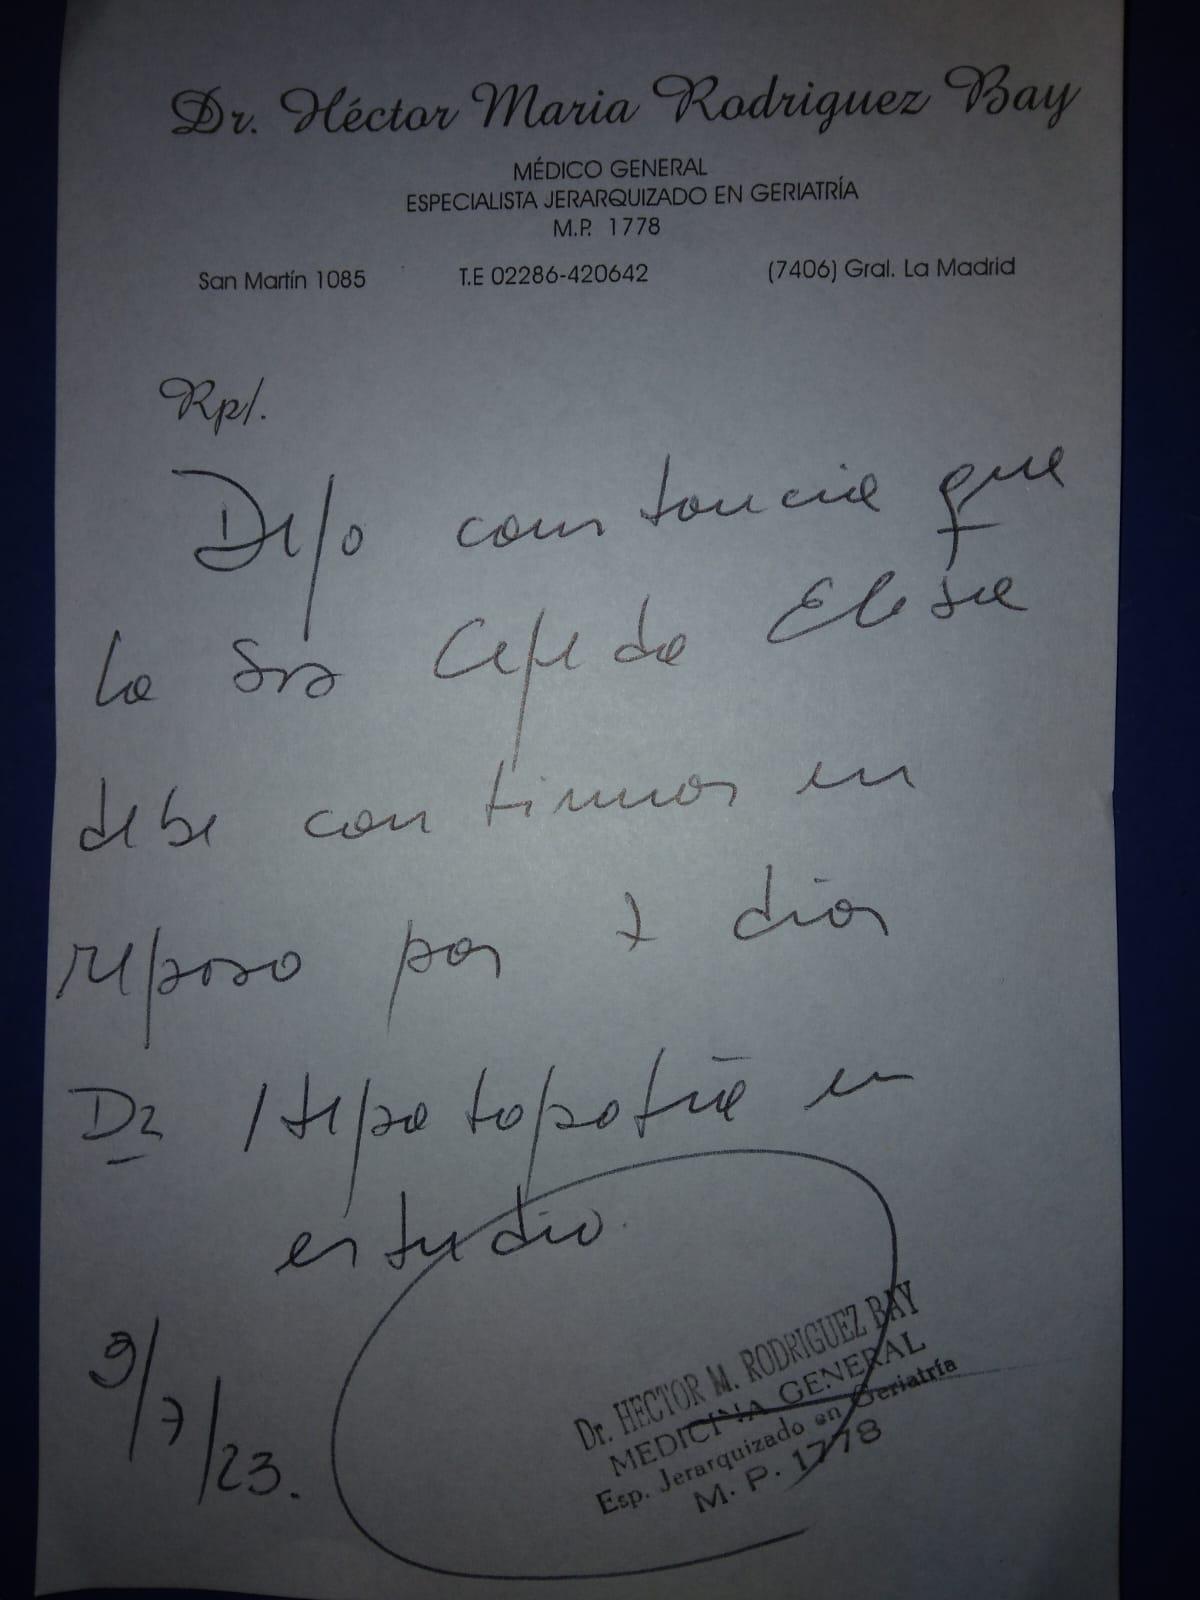 Dr. Héctor Maria Rodriguez Bay
MÉDICO GENERAL
ESPECIALISTA JERARQUIZADO EN GERIATRÍA
M.P. 1778
San Martín 1085 T.E 02286-420642 (7406) Gral. La Madrid
Rp/.
Dejo constancia que
la Sra Cepeda
debe continuar en
reposo por 7 dias
Dz Hepatopatía en
estudio.
9/7/23.
Dr. HECTOR M. RODRIGUEZ BAY
MEDICINA GENERAL
Esp. Jerarquizado en Geriatría
M. P. 1778